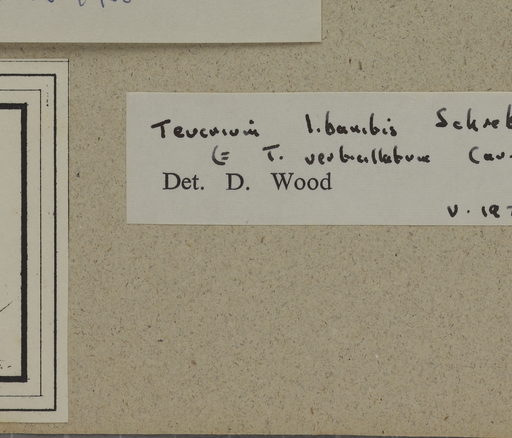 Teucrium libanitis Schreb
(= T. verticillatum Cav.
Det. D. Wood
V. 197